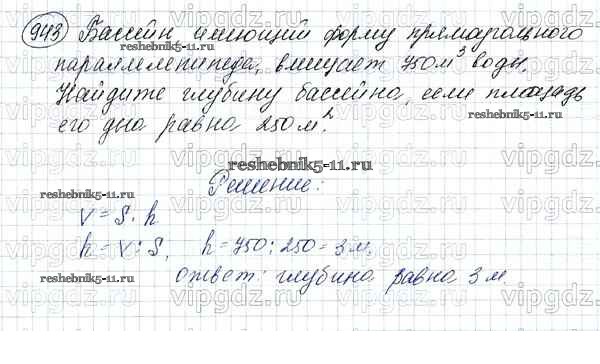 943 Бассейн имеющий форму прямоугольного
параллелепипеда, вмещает 750 м³ воды.
Найдите глубину бассейна, если площадь
его дна равна 250 м².
Решение:
V = S · h
h = V : S, h = 750 : 250 = 3 м.
ответ: глубина равна 3 м.
reshebnik5-11.ru
reshebnik5-11.ru
reshebnik5-11.ru
reshebnik5-11.ru
reshebnik5-11.ru
reshebnik5-11.ru
reshebnik5-11.ru
vipgdz.ru